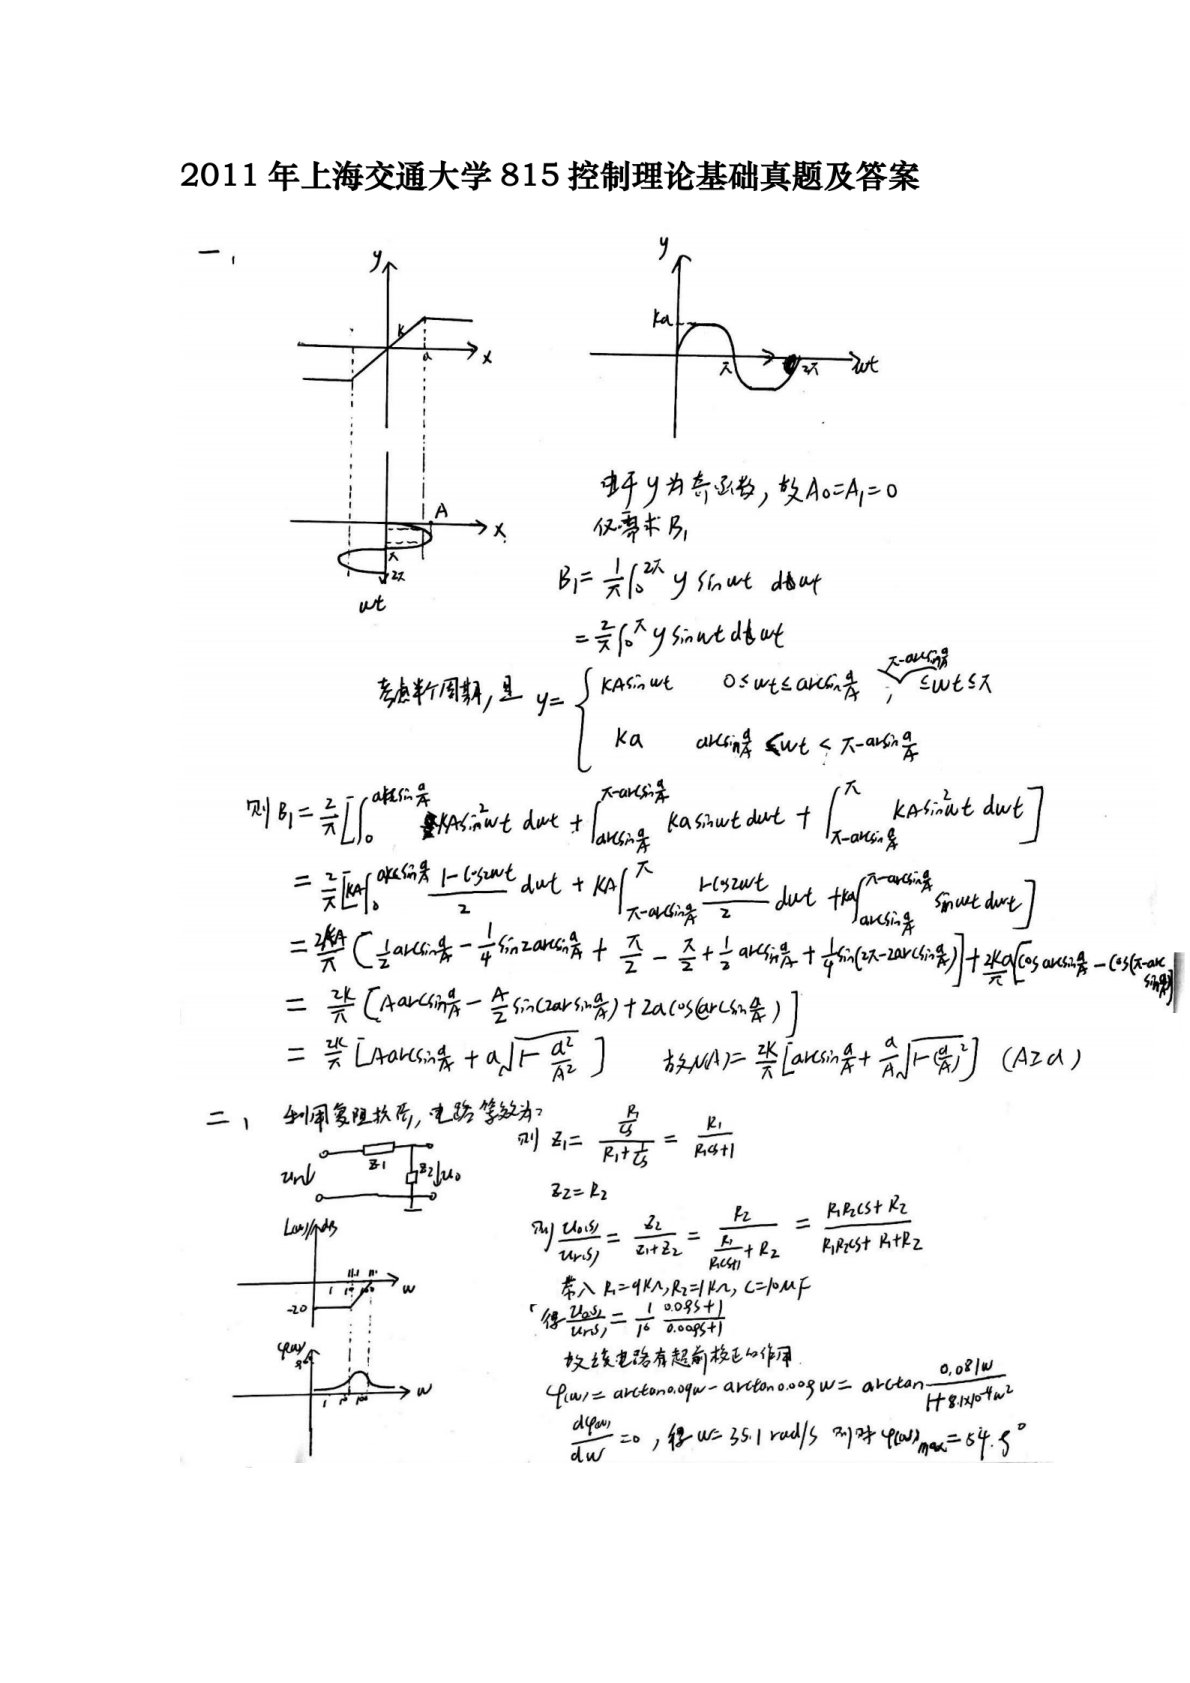 2011年上海交通大学815控制理论基础真题及答案
一、
y
K
a
x
y
Ka
π
2π
wt
A
x
π
2π
wt
由于y为奇函数，故A₀=A₁=0
仅需求B₁
B₁=1/π∫₀^2π y sinwt dwt
=2/π∫₀^π y sinwt dwt
考虑半个周期，且 y= { KAsinwt 0≤wt≤arcsin a/A ; π-arcsin a/A ≤wt≤π
Ka arcsin a/A ≤wt < π-arcsin a/A
则B₁=2/π[∫₀^(arcsin a/A) KAsin²wt dwt + ∫_(arcsin a/A)^(π-arcsin a/A) Kasinwt dwt + ∫_(π-arcsin a/A)^π KAsin²wt dwt]
=2/π[KA∫₀^(arcsin a/A) (1-cos2wt)/2 dwt + KA∫_(π-arcsin a/A)^π (1-cos2wt)/2 dwt + Ka∫_(arcsin a/A)^(π-arcsin a/A) sinwt dwt]
=2KA/π[1/2 arcsin a/A - 1/4 sin2arcsin a/A + π/2 - π/2 + 1/2 arcsin a/A + 1/4 sin(2π-2arcsin a/A)] + 2Ka/π[cosarcsin a/A - cos(π-arcsin a/A)]
=2K/π[Aarcsin a/A - A/2 sin(2arcsin a/A) + 2acos(arcsin a/A)]
=2K/π[Aarcsin a/A + a√(1-a²/A²)] 故N(A)=2K/π[arcsin a/A + a/A√(1-(a/A)²)] (A≥a)
二、利用复阻抗后，电路等效为：
Z1
Z2
ur
uo
则 Z₁= (R₁/Cs)/(R₁+1/Cs) = R₁/(R₁Cs+1)
Z2=R2
则 Uo(s)/Ur(s) = Z2/(Z1+Z2) = R2/(R1/(R1Cs+1)+R2) = (R1R2Cs+R2)/(R1R2Cs+R1+R2)
L(w)/dB
-20
1
w
带入R₁=9KΩ,R2=1KΩ,C=10μF
得 Uo(s)/Ur(s) = 1/10 (0.09s+1)/(0.009s+1)
故该电路有超前校正的作用
φ(w)
1
10
100
w
φ(w)=arctan0.09w-arctan0.009w=arctan 0.081w/(1+8.1×10⁻⁴w²)
dφ(w)/dw=0，得w=35.1 rad/s 则时φ(w)max=54.9°